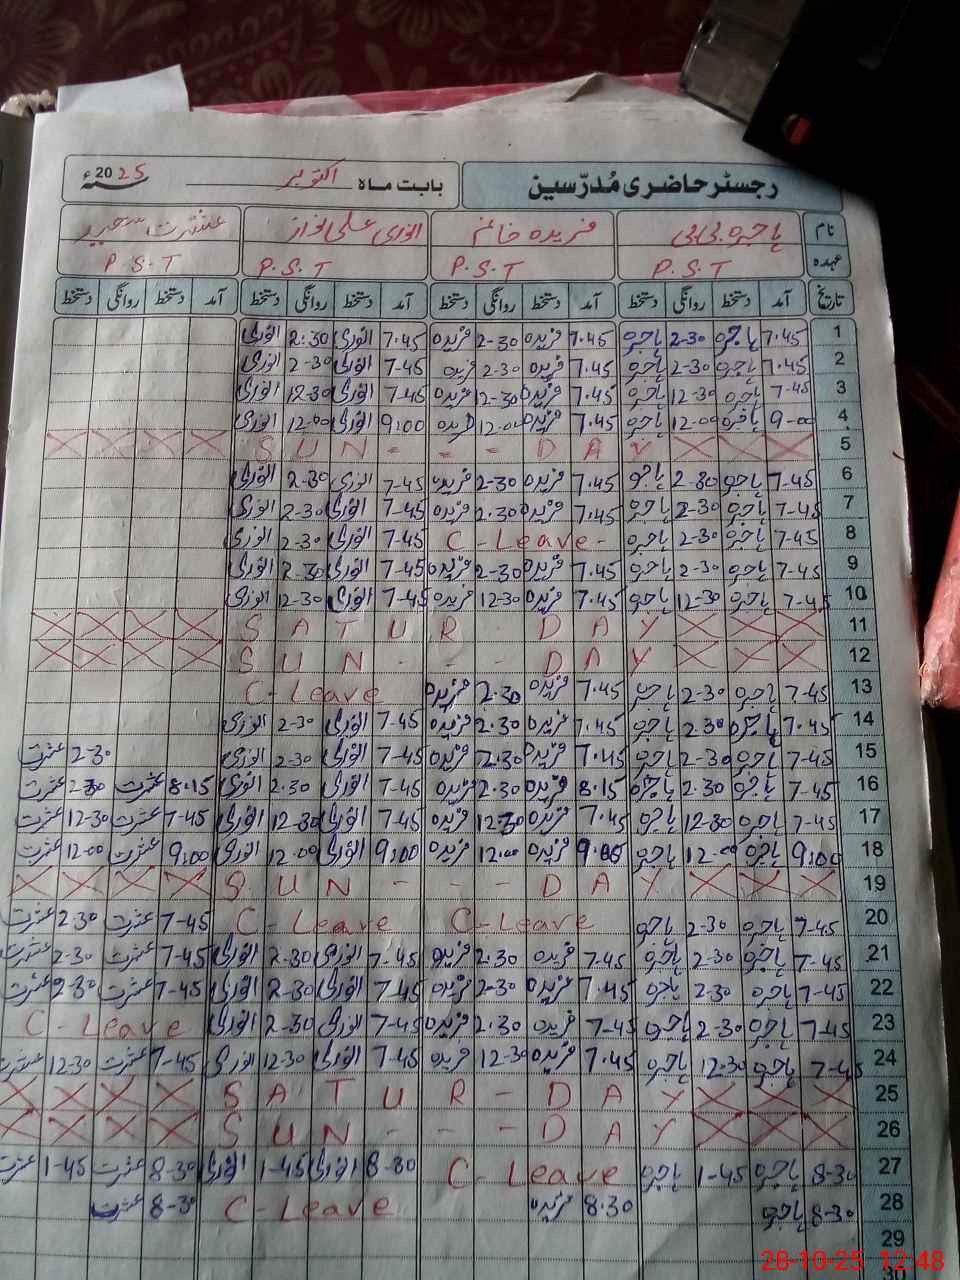 رجسٹر حاضری مُدرّسین بابت ماہ اکتوبر سنہ 2025ء
نام ہاجرہ بی بی فریدہ خانم انوری علی نواز عشرت
عہدہ P.S.T P.S.T P.S.T P.S.T
تاریخ آمد دستخط روانگی دستخط آمد دستخط روانگی دستخط آمد دستخط روانگی دستخط آمد دستخط روانگی دستخط
1 7.45 ہاجرہ 2-30 ہاجرہ 7.45 فریدہ 2-30 فریدہ 7.45 انوری 2:30 انوری
2 7.45 ہاجرہ 2-30 ہاجرہ 7.45 فریدہ 2-30 فریدہ 7-45 انوری 2-30 انوری
3 7-45 ہاجرہ 12-30 ہاجرہ 7.45 فریدہ 12-30 فریدہ 7-45 انوری 12-30 انوری
4 9-00 ہاجرہ 12-00 ہاجرہ 7.45 فریدہ 12.00 فریدہ 9:00 انوری 12-00 انوری
5 SUN - - - DAY
6 7-45 ہاجرہ 2-30 ہاجرہ 7.45 فریدہ 2-30 فریدہ 7-45 انوری 2-30 انوری
7 7-45 ہاجرہ 2-30 ہاجرہ 7.45 فریدہ 2.30 فریدہ 7-45 انوری 2-30 انوری
8 7-45 ہاجرہ 2-30 ہاجرہ C-Leave- 7-45 انوری 2-30 انوری
9 7-45 ہاجرہ 2-30 ہاجرہ 7.45 فریدہ 2-30 فریدہ 7-45 انوری 2-30 انوری
10 7-45 ہاجرہ 12-30 ہاجرہ 7.45 فریدہ 12-30 فریدہ 7-45 انوری 12-30 انوری
11 SATUR - DAY
12 SUN - - - DAY
13 7-45 ہاجرہ 2-30 ہاجرہ 7.45 فریدہ 2.30 فریدہ C-Leave
14 7.45 ہاجرہ 2-30 ہاجرہ 7.45 فریدہ 2.30 فریدہ 7-45 انوری 2-30 انوری
15 7-45 ہاجرہ 2-30 ہاجرہ 7.45 فریدہ 2.30 فریدہ 7-45 انوری 2-30 انوری 2-30 عشرت
16 7-45 ہاجرہ 2.30 ہاجرہ 8.15 فریدہ 2.30 فریدہ 7-45 انوری 2.30 انوری 8.15 عشرت 2-30 عشرت
17 7-45 ہاجرہ 12-30 ہاجرہ 7.45 فریدہ 12-30 فریدہ 7.45 انوری 12-30 انوری 7-45 عشرت 12-30 عشرت
18 9:00 ہاجرہ 12-00 ہاجرہ 9.00 فریدہ 12.00 فریدہ 9:00 انوری 12-00 انوری 9:00 عشرت 12-00 عشرت
19 SUN - - - DAY
20 7-45 ہاجرہ 2-30 ہاجرہ C-Leave C-Leave 7-45 عشرت 2.30 عشرت
21 7-45 ہاجرہ 2-30 ہاجرہ 7.45 فریدہ 2.30 فریدہ 7-45 انوری 2-30 انوری 7-45 عشرت 2-30 عشرت
22 7-45 ہاجرہ 2-30 ہاجرہ 7.45 فریدہ 2-30 فریدہ 7.45 انوری 2-30 انوری 7-45 عشرت 2-30 عشرت
23 7-45 ہاجرہ 2-30 ہاجرہ 7-45 فریدہ 2.30 فریدہ 7-45 انوری 2-30 انوری C-Leave
24 7-45 ہاجرہ 12.30 ہاجرہ 7.45 فریدہ 12-30 فریدہ 7-45 انوری 12-30 انوری 7-45 عشرت 12-30 عشرت
25 SATUR - DAY
26 SUN - - - DAY
27 8-30 ہاجرہ 1-45 ہاجرہ C-Leave 8-30 انوری 1-45 انوری 8-30 عشرت 1-45 عشرت
28 8-30 ہاجرہ 8.30 فریدہ C-Leave 8-30 عشرت
29
28-10-25 12:48